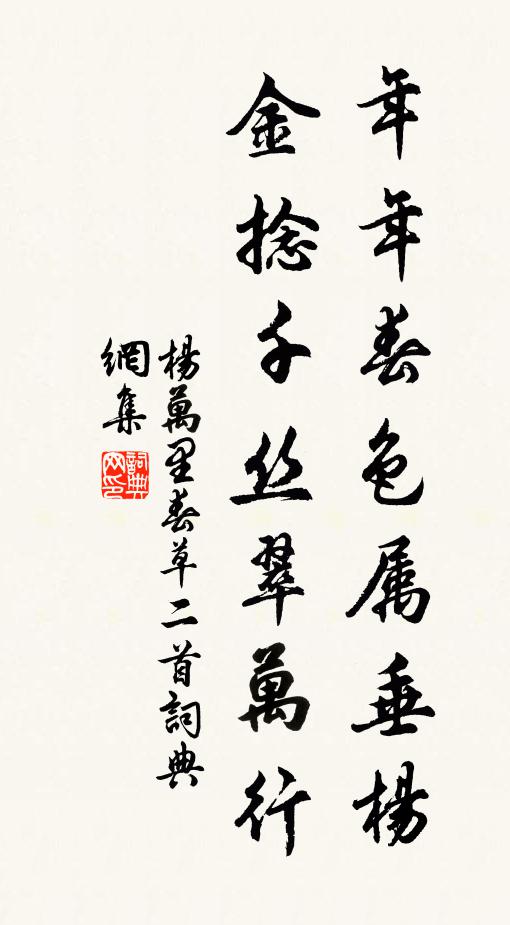 年年春色属垂楊
金捻千丝翠萬行
楊萬里春草二首詞典
網集
詞典网印